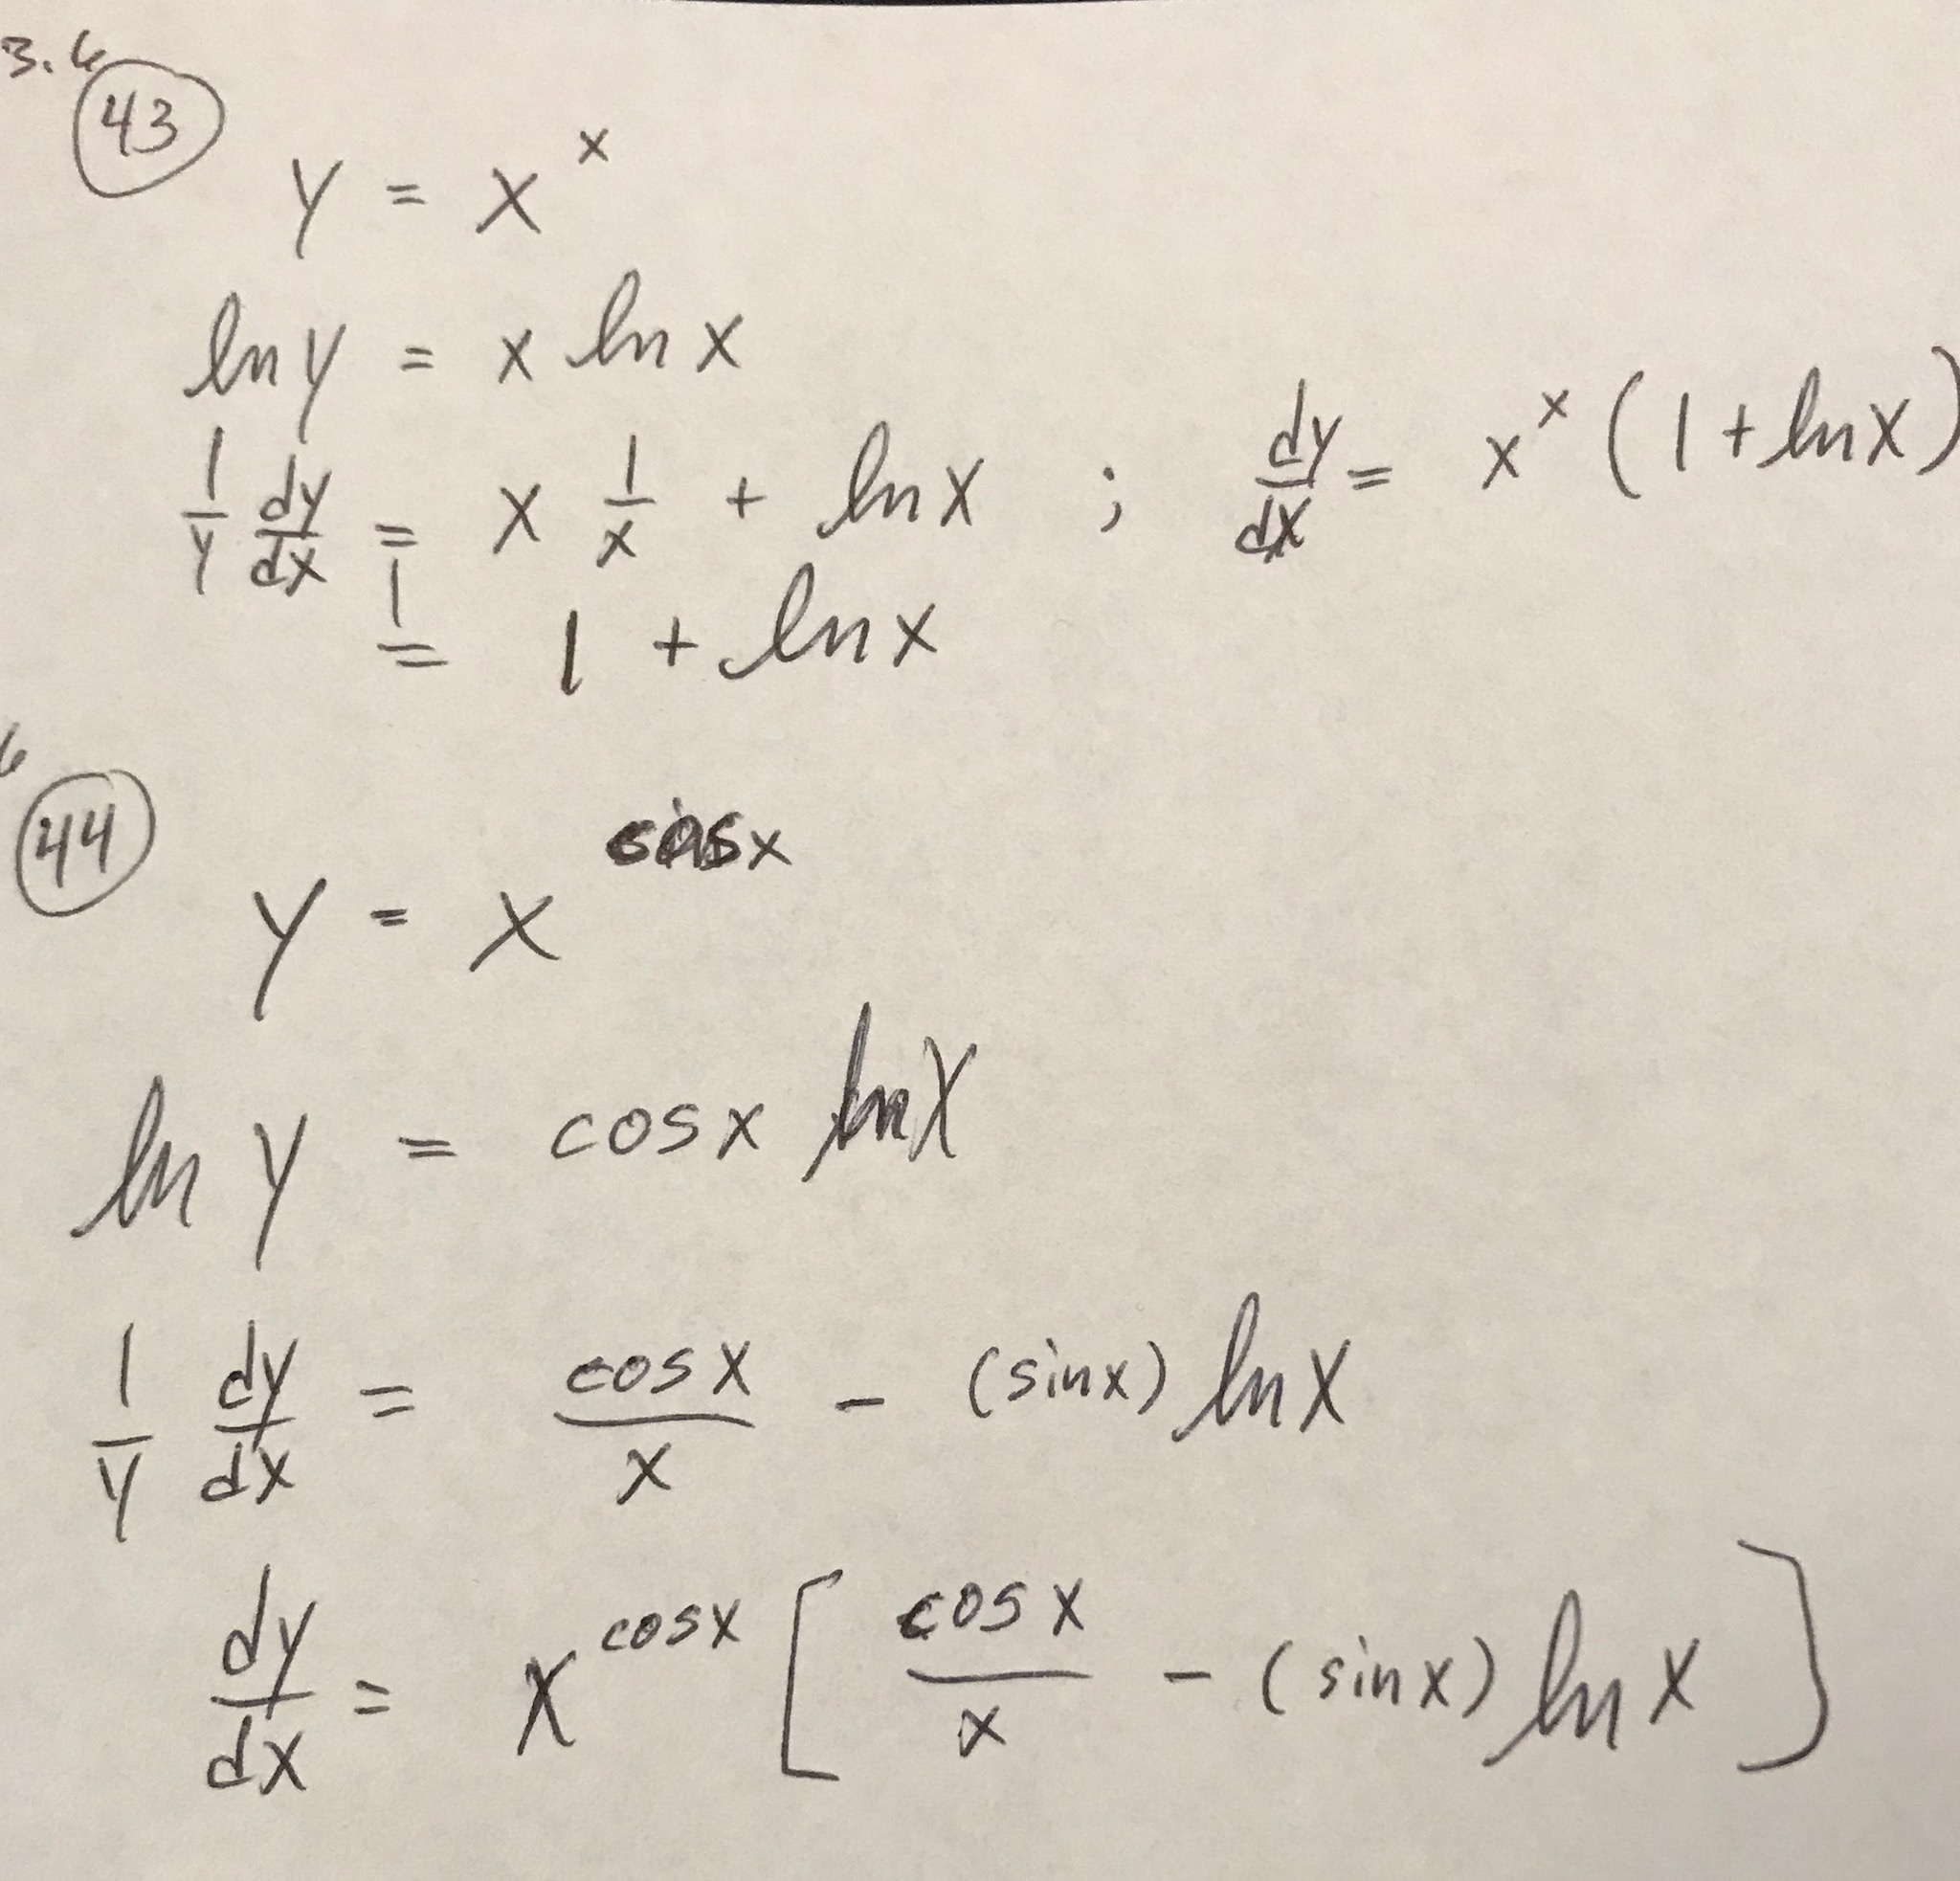 3.6
43
y = x^x
ln y = x ln x
1/y dy/dx = x 1/x + ln x ; dy/dx = x^x (1 + ln x)
= 1 + ln x
6
44
y = x^cos x
ln y = cos x ln x
1/y dy/dx = cos x/x - (sin x) ln x
dy/dx = x^cos x [cos x/x - (sin x) ln x]